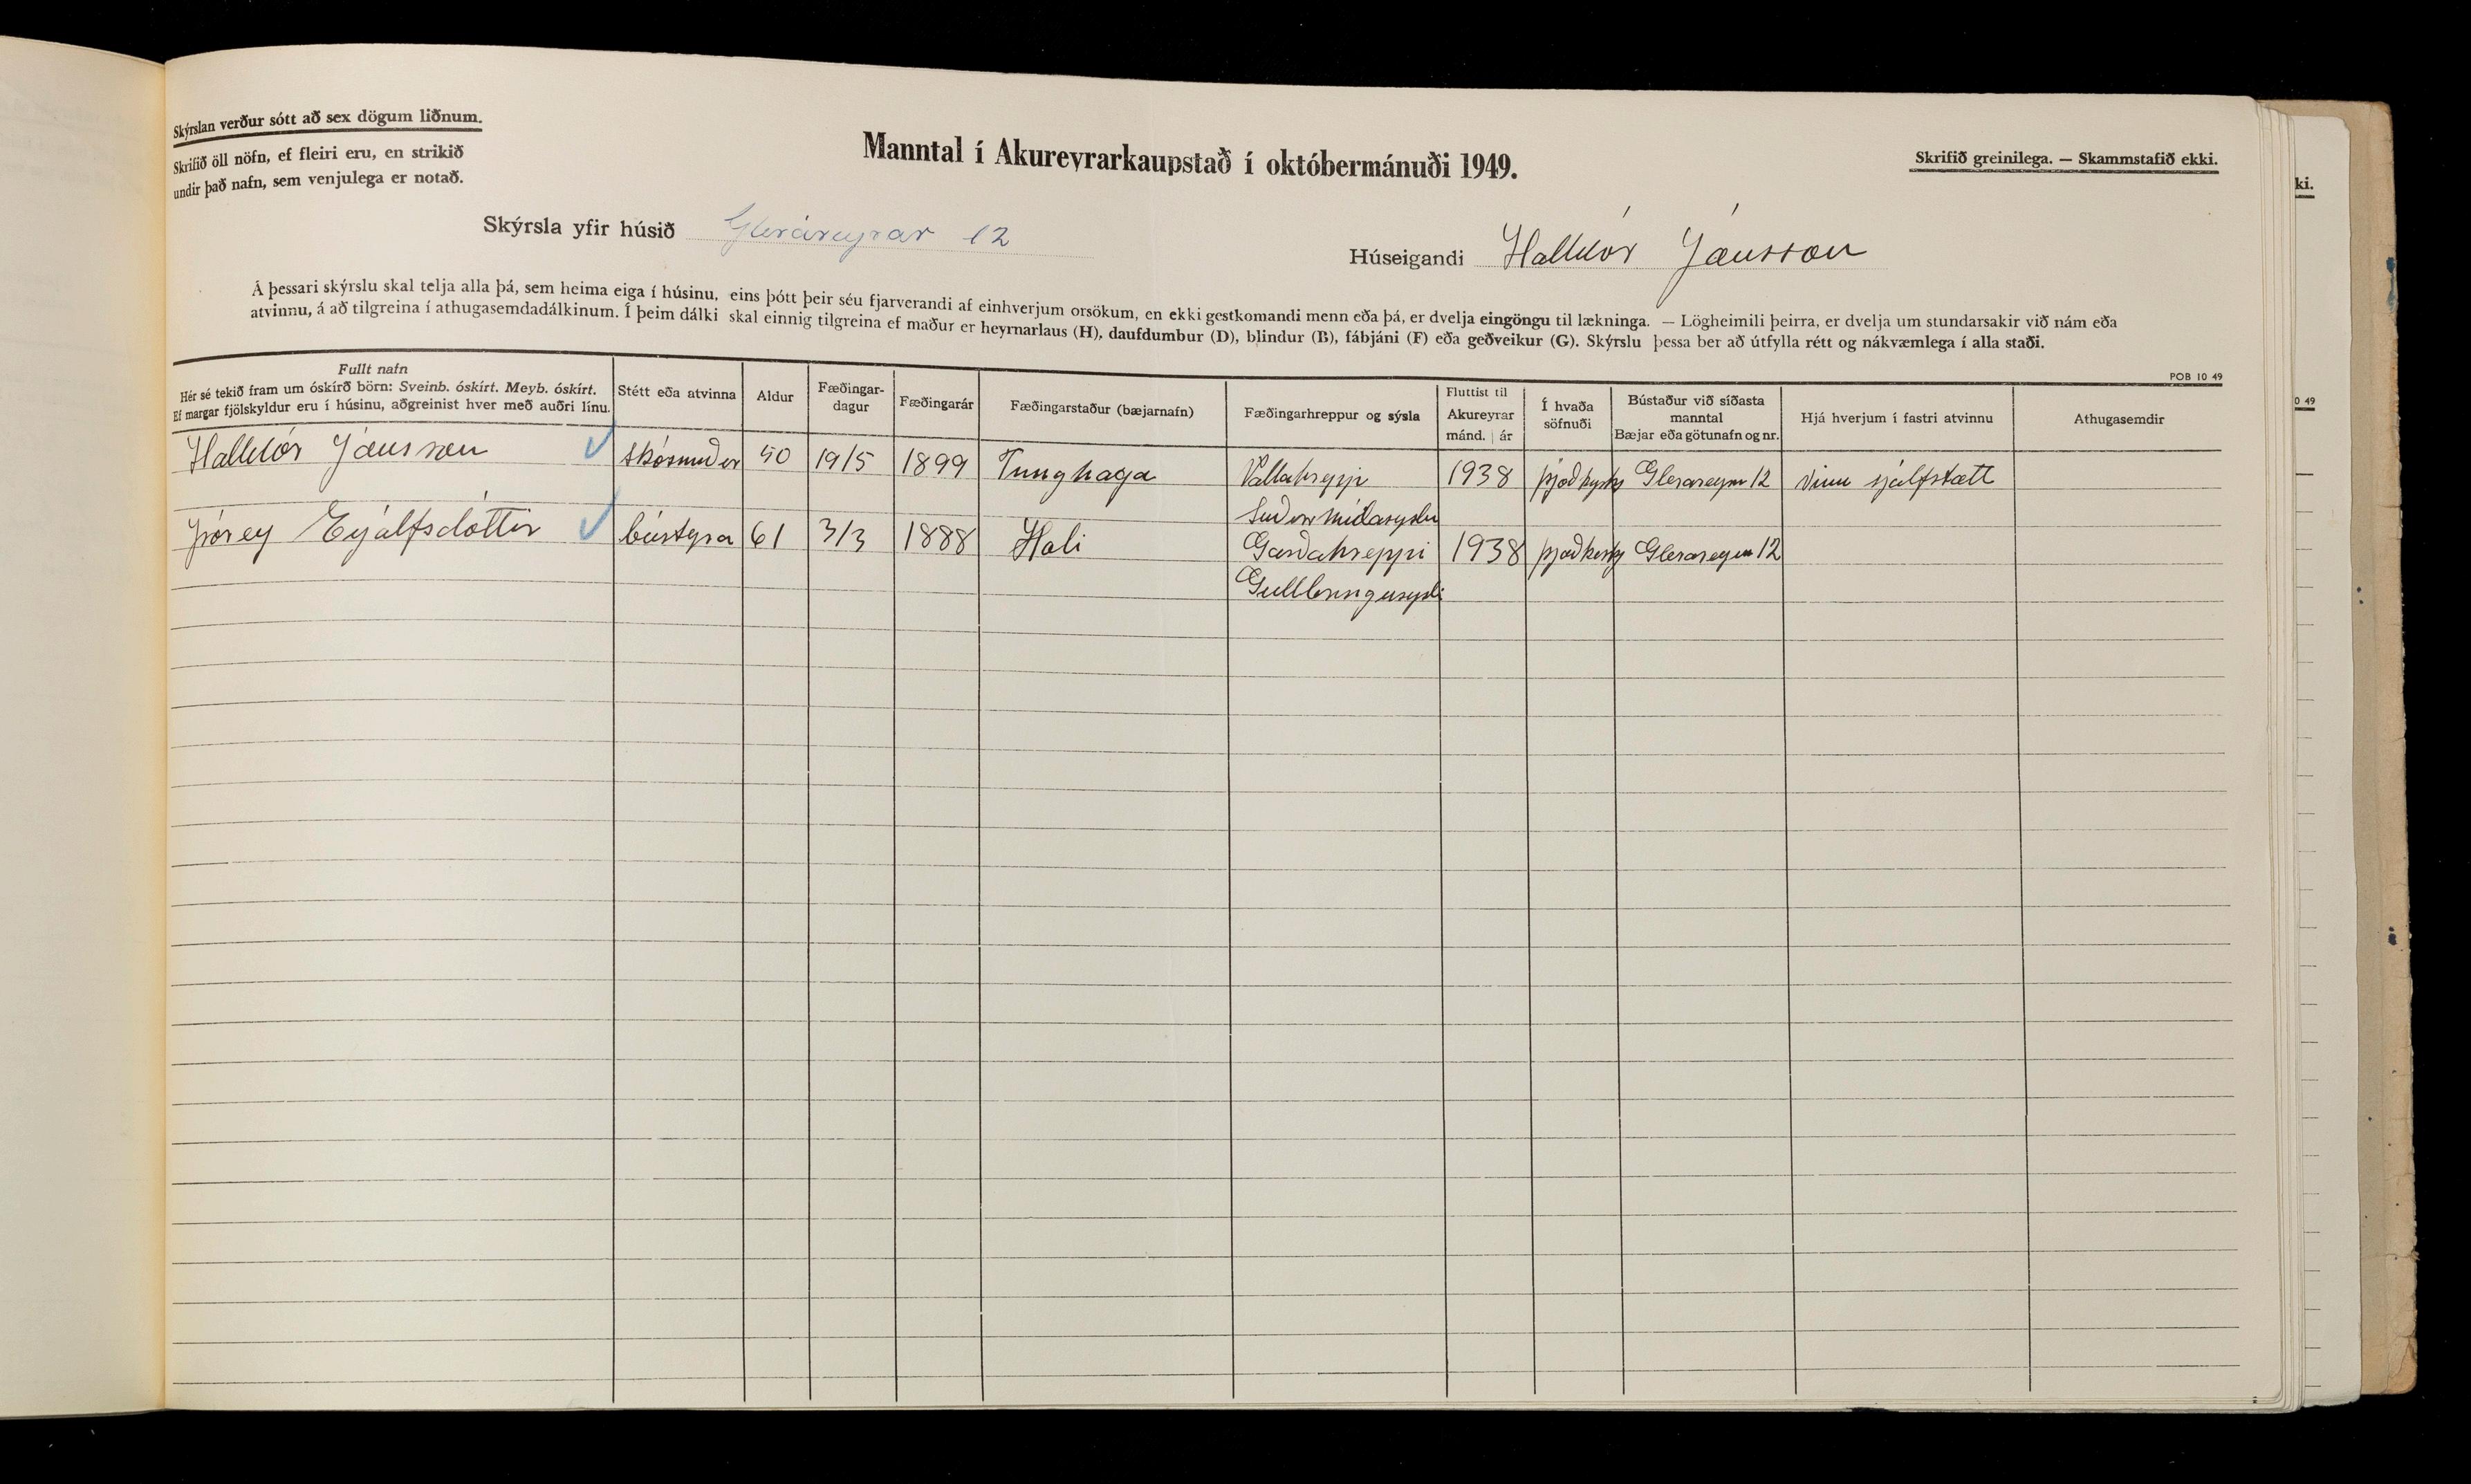 Skýrslan verður sótt að sex dögum liðnum.
Skrifið öll nöfn, ef fleiri eru, en strikið
undir það nafn, sem venjulega er notað.
Manntal í Akureyrarkaupstað í októbermánuði 1949.
Skrifið greinilega. — Skammstafið ekki.
ki.
Skýrsla yfir húsið Gleráreyrar 12
Húseigandi Halldór Jónsson
Á þessari skýrslu skal telja alla þá, sem heima eiga í húsinu, eins þótt þeir séu fjarverandi af einhverjum orsökum, en ekki gestkomandi menn eða þá, er dvelja eingöngu til lækninga. — Lögheimili þeirra, er dvelja um stundarsakir við nám eða
atvinnu, á að tilgreina í athugasemdadálkinum. Í þeim dálki skal einnig tilgreina ef maður er heyrnarlaus (H), daufdumbur (D), blindur (B), fábjáni (F) eða geðveikur (G). Skýrslu þessa ber að útfylla rétt og nákvæmlega í alla staði.
POB 10 49
0 49
Fullt nafn
Hér sé tekið fram um óskírð börn: Sveinb. óskírt. Meyb. óskírt.
Ef margar fjölskyldur eru í húsinu, aðgreinist hver með auðri línu.
Stétt eða atvinna
Aldur
Fæðingar-
dagur
Fæðingarár
Fæðingarstaður (bæjarnafn)
Fæðingarhreppur og sýsla
Fluttist til
Akureyrar
mánd. | ár
Í hvaða
söfnuði
Bústaður við síðasta
manntal
Bæjar eða götunafn og nr.
Hjá hverjum í fastri atvinnu
Athugasemdir
Halldór Jónsson skósmiður 50 19/5 1899 Tunghaga Vallahreppi 1938 þjóðkirkj Glerareyrar 12 Vinn sjálfstætt
Suður Múlasyslu
Þórey Eyjálfsdóttir bústyra 61 3/3 1888 Hali Gardahreppi 1938 þjoðkirkj Glerareyrar 12
Gullbringusysli